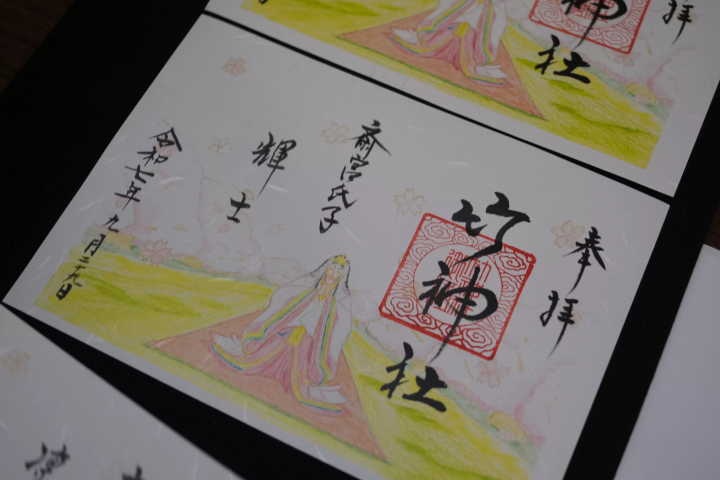 奉拝
竹神社
斎宮氏子
輝士
令和七年九月二十九日
神社
拝